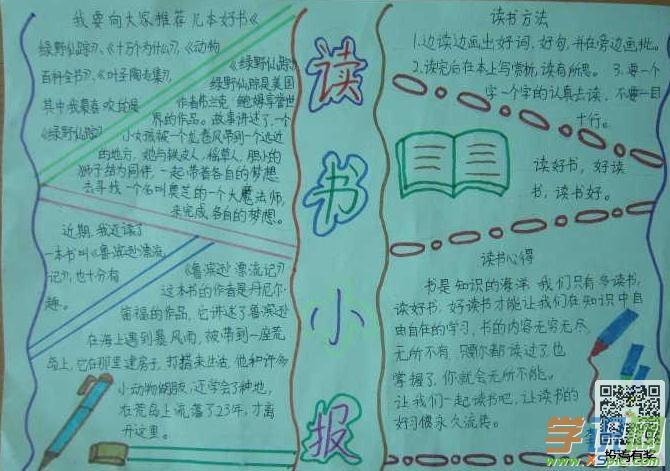 我要向大家推荐几本好书《
绿野仙踪》,《十万个为什么》,《动物
百科全书》,《叶子陶走集》,
其中我最喜欢的是
《绿野仙踪》
《绿野仙踪》
绿野仙踪是美国
作者弗兰克·鲍姆享誉世
界的作品。故事讲述了一个
小女孩被一个龙卷风带到一个遥远
的地方,她与铁皮人,稻草人,胆小的
狮子结为同伴,一起带着各自的梦想
去寻找一个名叫奥芝的一个大魔法师,
来完成各自的梦想。
近期,我还读了
一本书叫《鲁滨逊漂流
记》,也十分有
趣。
《鲁滨逊漂流记》
这本书的作者是丹尼尔·
笛福的作品,它讲述了鲁滨逊
在海上遇到暴风雨,被带到一座荒
岛上,它在那里建房子,打猎来生活,他和许多
小动物做朋友,还学会了种地,
在荒岛上流落了23年,才离
开这里。
读
书
小
报
读书方法
1.边读边画出好词,好句,并在旁边批。
2.读完后在本上写赏析,读有所思。3.要一个
字一个字的认真去读,不要一目
十行。
读好书,好读
书,读书好。
读书心得
书是知识的海洋,我们只有多读书,
读好书,好读书才能让我们在知识中自
由自在的学习,书的内容无穷无尽,
无所不有,只要你都读过了,也
掌握了,你就会无所不能。
让我们一起读书吧,让读书的
好习惯永久流传。
投稿有奖